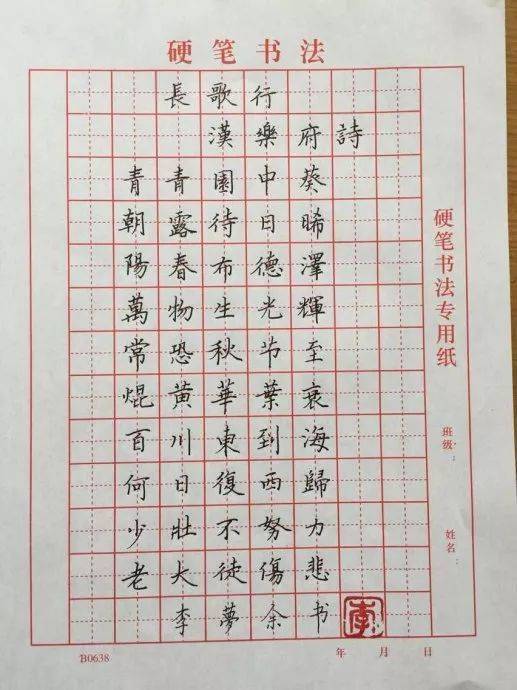 硬笔书法
長歌行
漢樂府詩
青青園中葵
朝露待日晞
陽春布德澤
萬物生光輝
常恐秋节至
焜黃華葉衰
百川東到海
何日復西歸
少壯不努力
老大徒傷悲
李夢余书
李
硬笔书法专用纸
班级：
姓名：
B0638 年 月 日